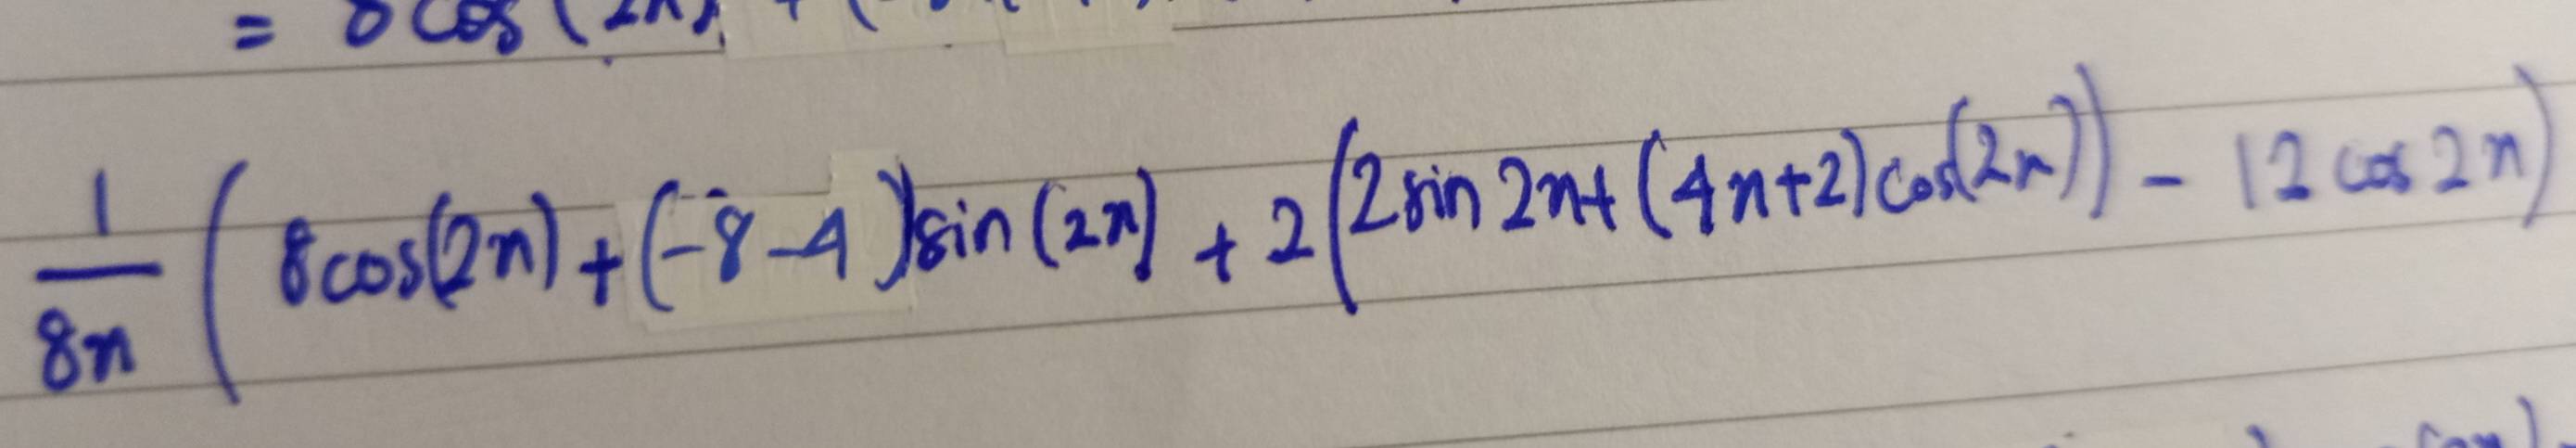 = 8 cos (2x)
1/8x ( 8cos(2x) + (-8-4) sin (2x) + 2 (2 sin 2x + (4x+2) cos(2x)) - 12 cos 2x )